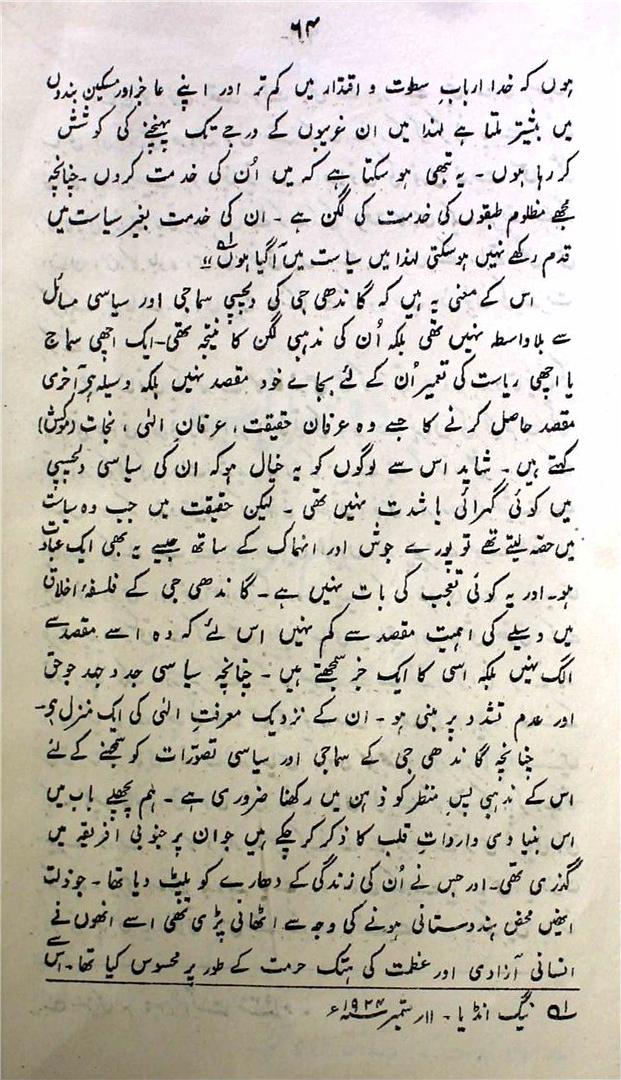 ۶۴
ہوں کہ خدا اربابِ سطوت و اقتدار میں کم تر اور اپنے عاجز اور مسکین بندوں
میں بیشتر ملتا ہے لہٰذا میں ان غریبوں کے درجے تک پہنچنے کی کوشش
کر رہا ہوں ۔ یہ تبھی ہو سکتا ہے کہ میں اُن کی خدمت کروں ۔ چنانچہ
مجھے مظلوم طبقوں کی خدمت کی لگن ہے ۔ ان کی خدمت بغیر سیاست میں
قدم رکھے نہیں ہوسکتی لہٰذا میں سیاست میں آگیا ہوں؂۱"
اس کے معنی یہ ہیں کہ گاندھی جی کی دلچسپی سماجی اور سیاسی مسائل
سے بلاواسطہ نہیں تھی بلکہ اُن کی مذہبی لگن کا نتیجہ تھی ۔ ایک اچھی سماج
یا اچھی ریاست کی تعمیر اُن کے لئے بجائے خود مقصد نہیں بلکہ وسیلہ ہے آخری
مقصد حاصل کرنے کا جسے وہ عرفان حقیقت، عرفانِ الٰہی، نجات (موکش)
کہتے ہیں ۔ شاید اس سے لوگوں کو یہ خیال ہو کہ ان کی سیاسی دلچسپی
میں کوئی گہرائی یا شدت نہیں تھی ۔ لیکن حقیقت میں جب وہ سیاست
میں حصہ لیتے تھے تو پورے جوش اور انہماک کے ساتھ جیسے یہ بھی ایک عبادت
ہو ۔ اور یہ کوئی تعجب کی بات نہیں ہے ۔ گاندھی جی کے فلسفۂ اخلاق
میں وسیلے کی اہمیت مقصد سے کم نہیں اس لئے کہ وہ اسے مقصد سے
الگ نہیں بلکہ اسی کا ایک جز سمجھتے ہیں ۔ چنانچہ سیاسی جدوجہد جو حق
اور عدم تشدد پر مبنی ہو ۔ ان کے نزدیک معرفتِ الٰہی کی ایک منزل ہے ۔
چنانچہ گاندھی جی کے سماجی اور سیاسی تصوّرات کو سمجھنے کے لئے
اس کے مذہبی پس منظر کو ذہن میں رکھنا ضروری ہے ۔ ہم پچھلے باب میں
اس بنیادی وارداتِ قلب کا ذکر کر چکے ہیں جو ان پر جنوبی افریقہ میں
گذری تھی ۔ اور جس نے اُن کی زندگی کے دھارے کو پلٹ دیا تھا ۔ جو ذلت
انھیں محض ہندوستانی ہونے کی وجہ سے اٹھانی پڑی تھی اسے انھوں نے
انسانی آزادی اور عظمت کی ہتک حرمت کے طور پر محسوس کیا تھا ۔ اس سے
؂۱ ینگ انڈیا ۔ ۱۱ر ستمبر ۱۹۲۴ء